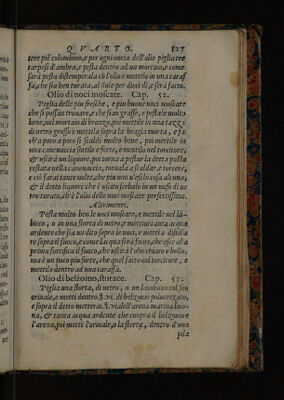 QVARTO. 127
tere poi colombino, e per ogni oncia dell'olio piglia tre
tar pesi d'ambra, e pesta dentro ad un mortaio, e come
sarà pesta distemperala cō l'olio e mettilo in una caraf
fa, che sia ben turata, al Sole per dieci dì, e serà fatto
Olio di noci moscate. Cap. 52.
Piglia delle piu fresche, e piu buone noci moscate
che si possan trouare, e che sian grasse, e pestale molto
bene, nel mortaio di bronzo, poi mettile in una tazza
di uetro grosso e mettila sopra la bragia morta, e fa
ch'a poco a poco si scaldi molto bene, poi mettile in
una caneuaccia sottile e forte, e mettilo nel torcitore,
& uscirà un liquore, poi torna a pestar la detta pasta
restata nella canouaccia, tornala a scaldare, e torcere,
e cō farai tante uolte, che piu non n'eschi cosa alcuna,
& il detto liquore che è uscito serbalo in un uaso di ue
tro turato, ch'è l'olio delle noci moscate perfettissimo.
Altrimenti.
Pesta molto ben le noci moscate, e mettile nel lā-
bicco, o in una storta di uetro, e mettiui tanta acqua
ardente che stia un dito sopra le noci, e metti a distilla
re sopra il fuoco, e come l'acqua serà fuora, che esce alla
prima fortifica il fuoco, che uscirà l'olio chiaro e bello,
ma è un poco piu forte, che quel fatto col torcitore, e
mettilo dentro ad una caraffa.
Olio di belzoino, storace. Cap. 53.
Piglia una storta, di uetro, o un lambicco col suo
orinale, e metti dentro.℥. vi. di belzoino poluerizato,
e sopra il detto metter ai.℥. vi. dell'arena marina buo
na, & tanta acqua ardente che cuopra il belzoino e
l'arena, poi metti l'orinale, o la storta, dentro d'una
pila